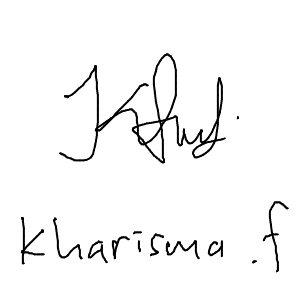 Kharisma . f